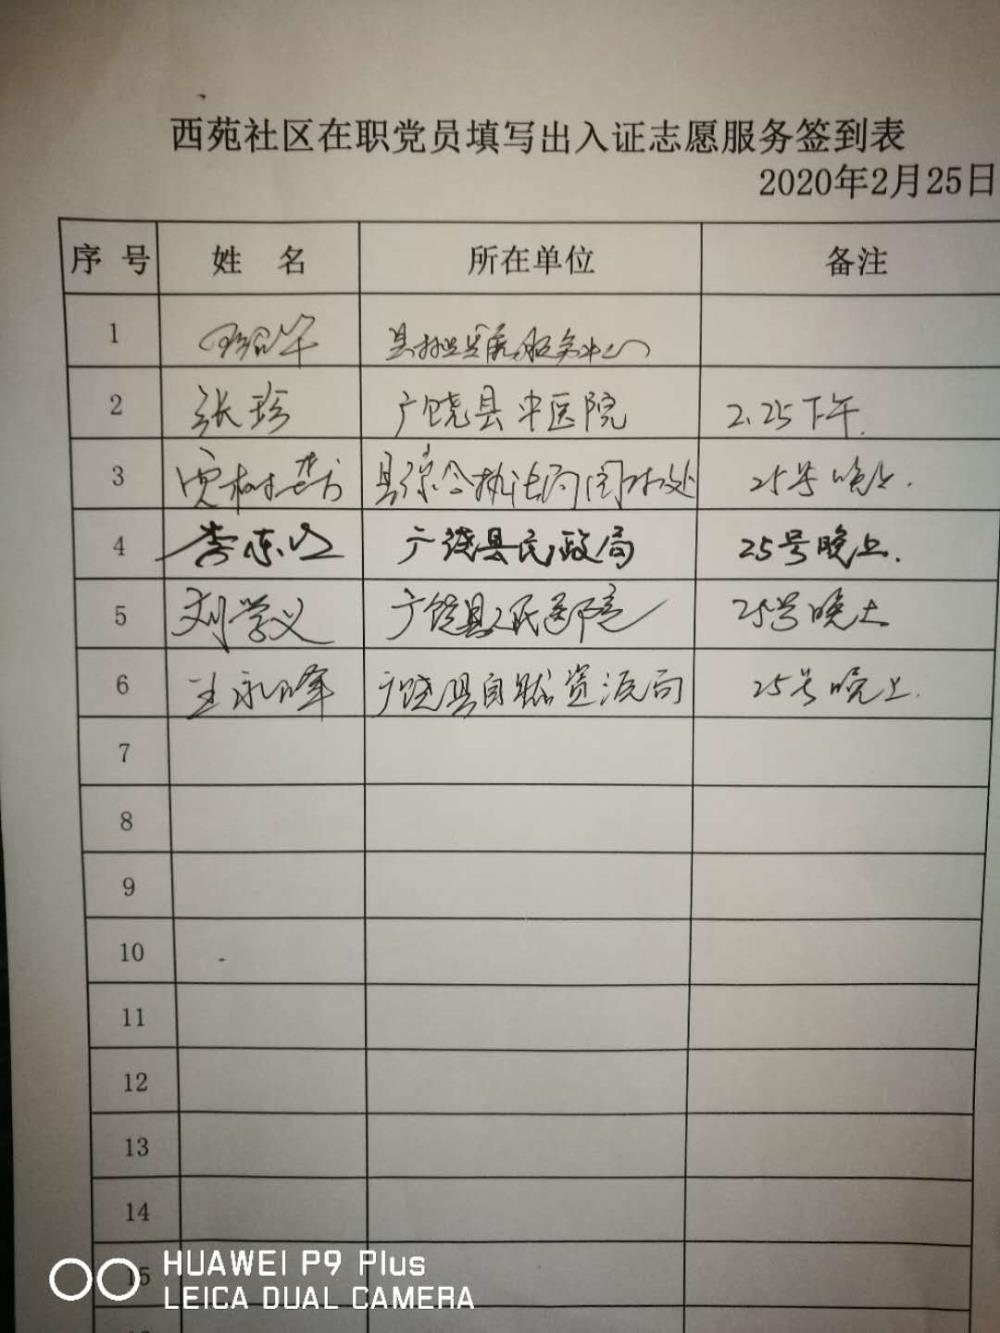 西苑社区在职党员填写出入证志愿服务签到表
2020年2月25日
序号 姓名 所在单位 备注
1 县 服务中心
2 张珍 广饶县中医院 2.25下午.
3 贾树 县综合执法局 25号晚上.
4 李 广饶县民政局 25号晚上.
5 刘学义 广饶县人民医院 25号晚上
6 王永峰 广饶县自然资源局 25号晚上.
7
8
9
10
11
12
13
14
15
HUAWEI P9 Plus
LEICA DUAL CAMERA